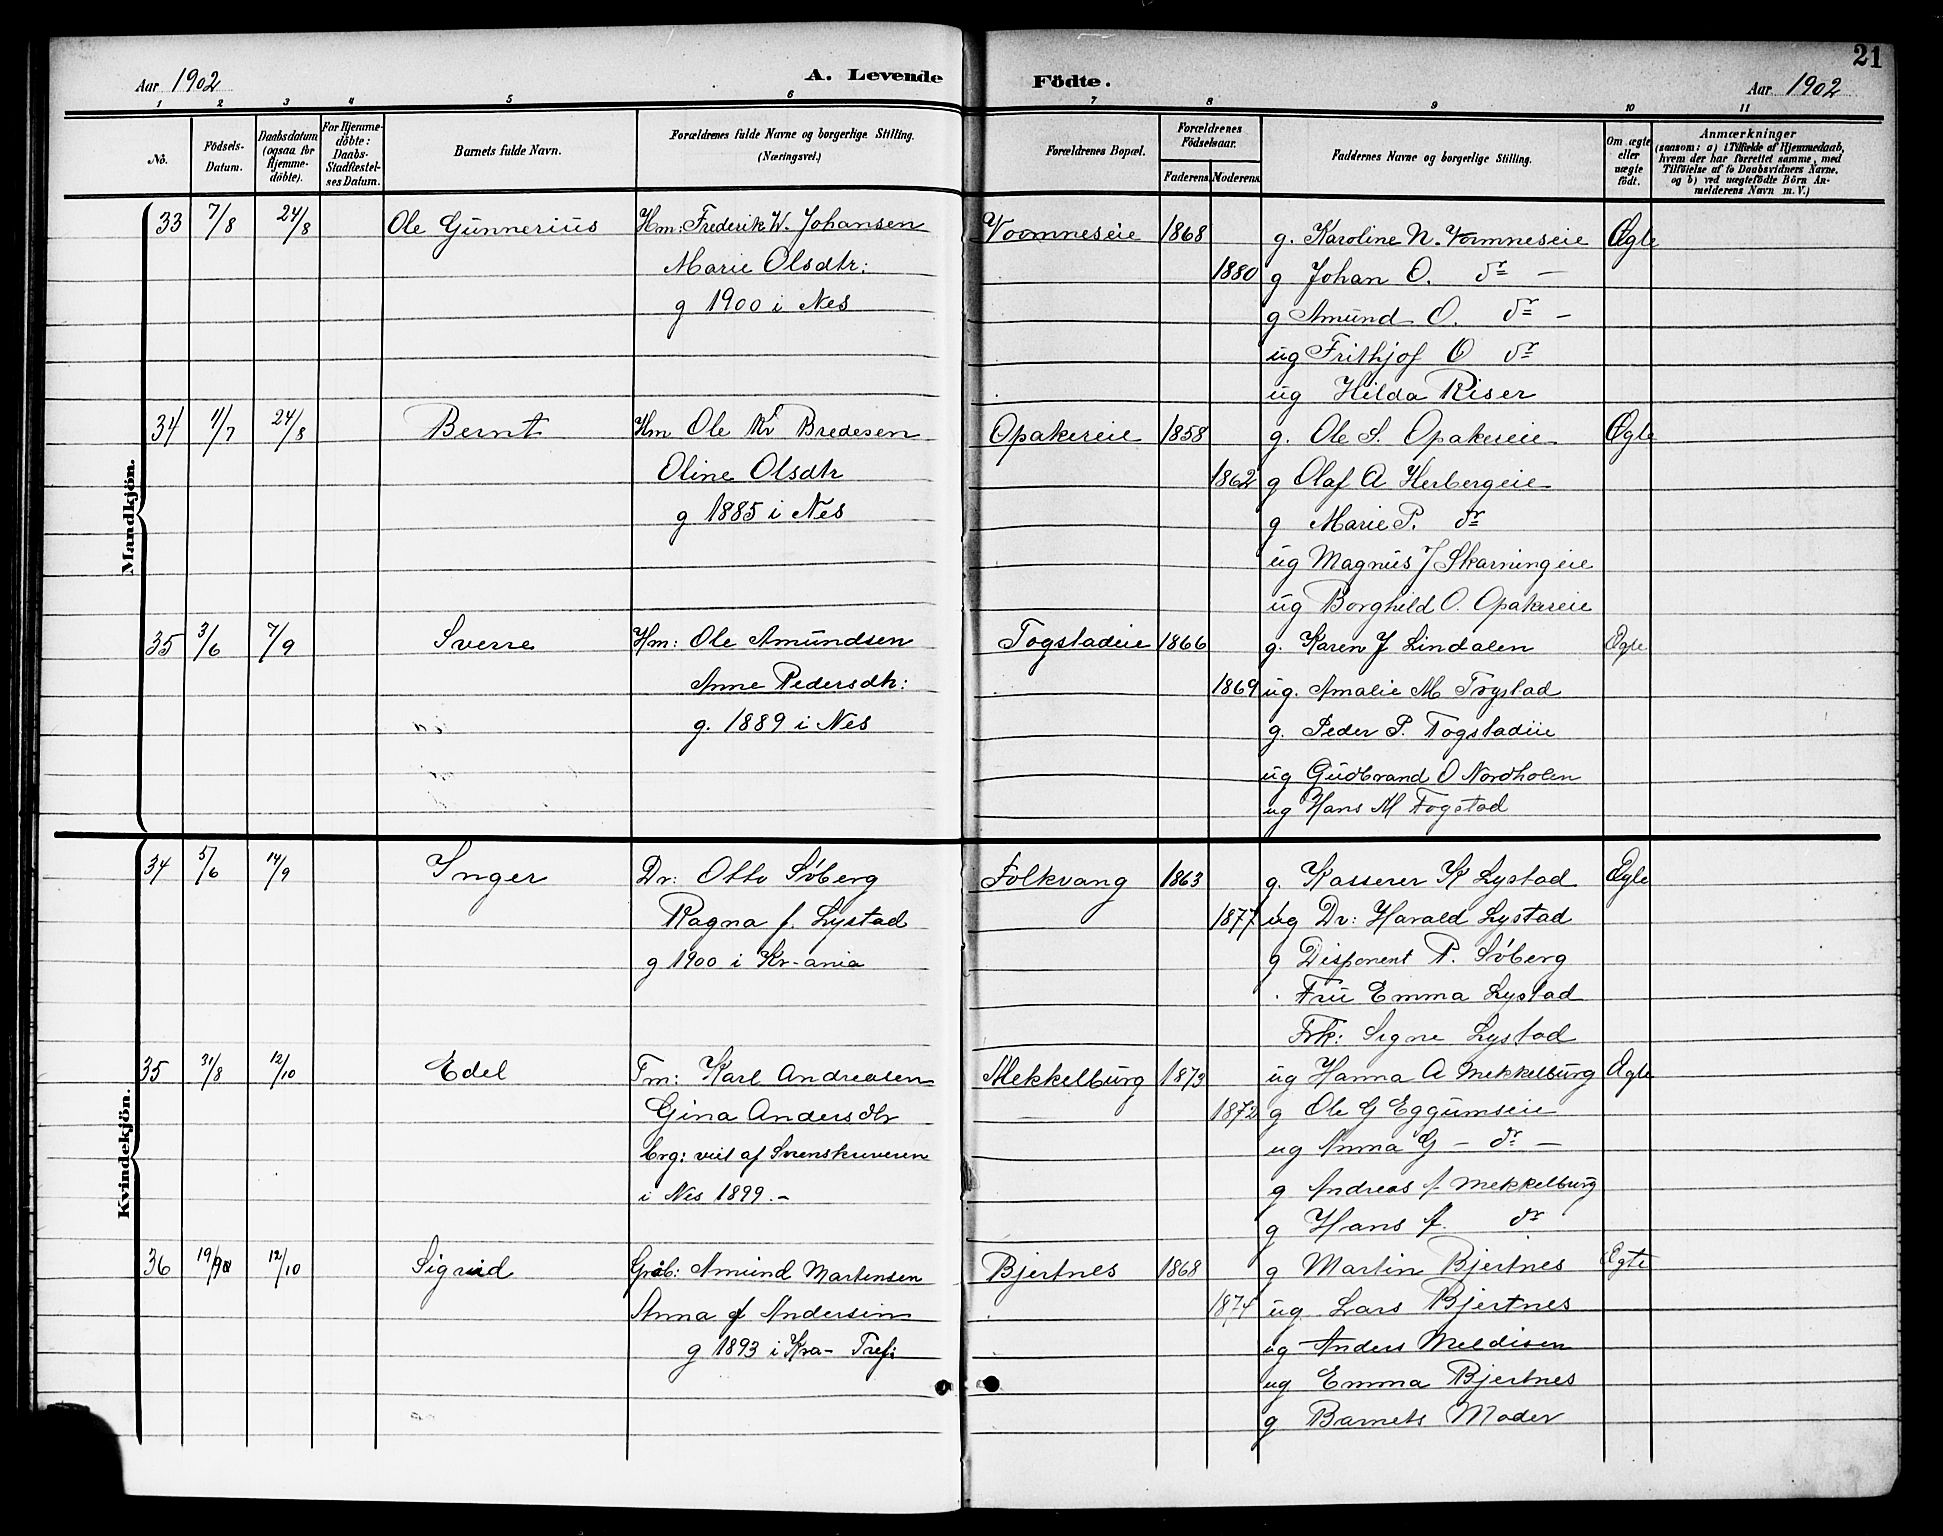 21
Aar 1902 A. Levende Födte. Aar 1902
1 2 3 4 5 6 7 8 9 10 11
No. Födsels-Datum. Daabsdatum (ogsaa for Hjemme-döbte). For Hjemme-döbte: Daabs-Stadfæstel-ses Datum. Barnets fulde Navn. Forældrenes fulde Navne og borgerlige Stilling. (Næringsvei.) Forældrenes Bopæl. Forældrenes Födselsaar. Faderens Moderens Faddernes Navne og borgerlige Stilling. Om ægte eller uægte födt. Anmærkninger (saasom: a) i Tilfælde af Hjemmedaab, hvem der har forrettet samme, med Tilföielse af to Daabsvidners Navne, og b) ved uægtefödte Börn An-melderens Navn m. V.)
Mandkjön.
33 7/8 24/8 Ole Gunnerius Hm: Frederik W. Johansen Vormneseie 1868 g. Karoline N. Vormneseie Ægte
Marie Olsdtr: 1880 g Johan O. dr —
g 1900 i Nes g Amund O. dr —
ug Frithjof O dr
ug Hilda Riser
34 11/7 24/8 Bernt Hm Ole Kr Bredesen Opakereie 1858 g. Ole S. Opakereie Ægte
Oline Olsdtr 1862 g Olaf A Herbergeie
g 1885 i Nes g Marie P. dr
ug Magnus J Skarningeie
ug Borghild O. Opakereie
35 3/6 7/9 Sverre Hm: Ole Amundsen Fogstadeie 1866 g. Karen J Lindalen Ægte
Anne Pedersdtr: 1869 ug. Amalie M Fogstad
g. 1889 i Nes g. Peder P. Fogstadeie
ug Gudbrand O Nordholen
ug Hans M Fogstad
Kvindekjön.
34 5/6 14/9 Inger Dr: Otto Söberg Folkvang 1863 g. Kasserer K Lystad Ægte
Ragna f. Lystad 1877 ug Dr: Harald Lystad
g 1900 i Kr-ania g Disponent P. Söberg
Fru Emma Lystad
Frk: Signe Lystad
35 31/8 12/10 Edel Tm: Karl Andreasen Mekkelburg 1873 ug Hanna A Mekkelburg Ægte
Gina Andersdtr 1872 g Ole G Eggumseie
brg: viet af Svenskeveren ug Anna G — dr —
i Nes 1899. — g Andreas A. Mekkelburg
g Hans A. dr
36 19/9 12/10 Sigrid Grdb: Amund Martensen Bjertnes 1868 g Martin Bjertnes Ægte
Anna f Andersen 1874 ug Lars Bjertnes
g 1893 i Kra— Tref: ug Anders Meldisen
ug Emma Bjertnes
g Barnets Moder